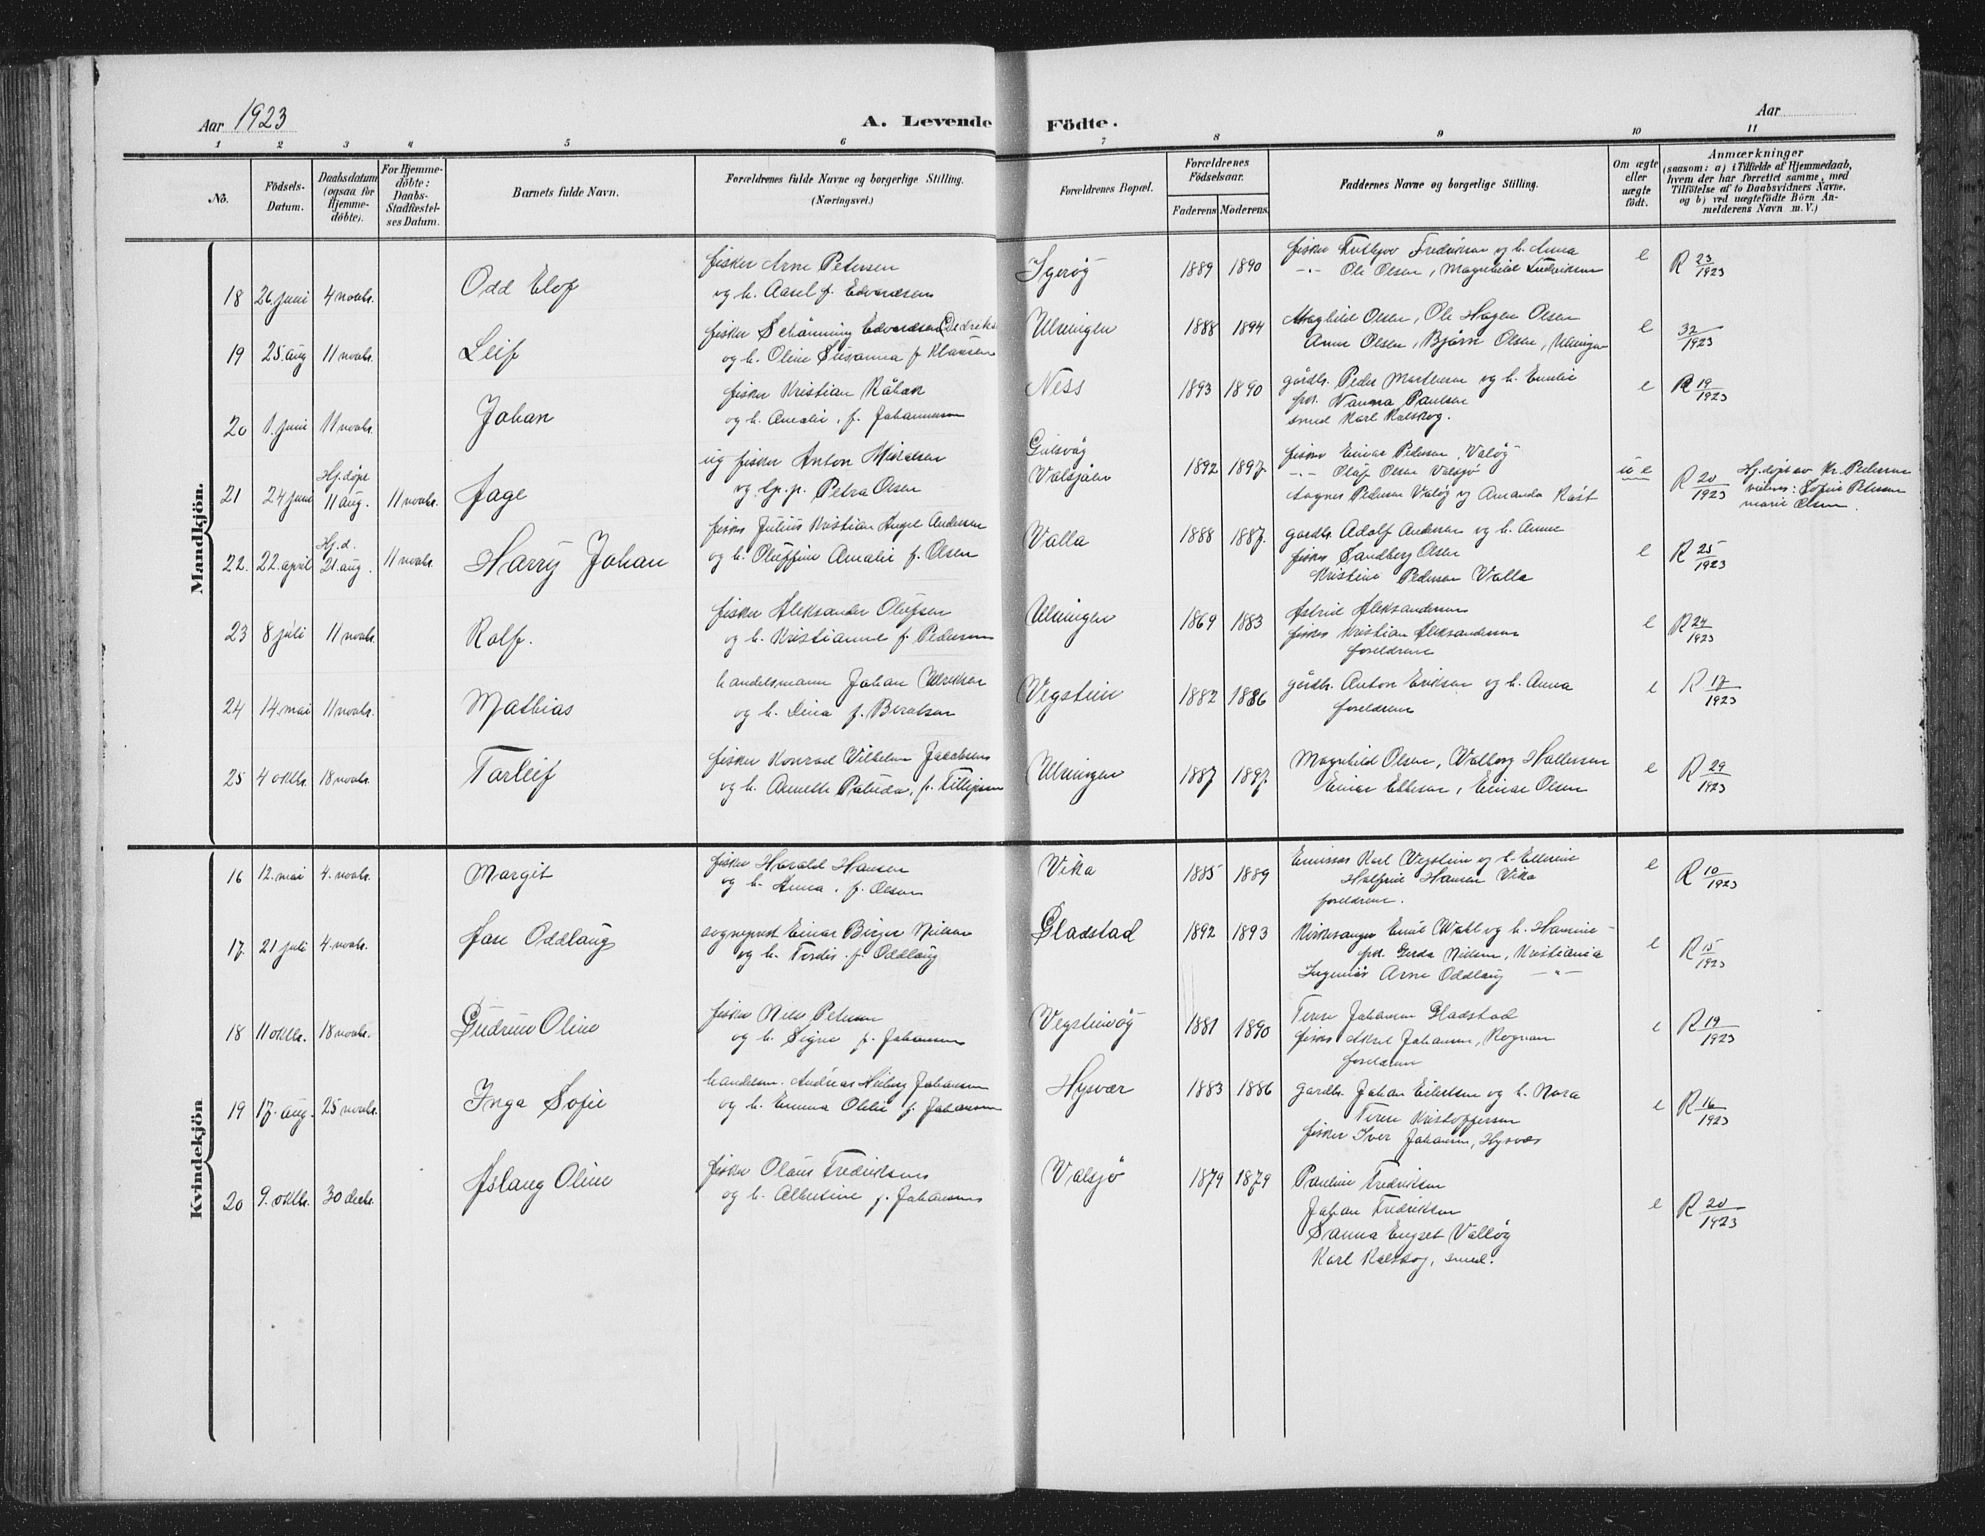 Aar 1923
A. Levende Födte.
Aar
1 2 3 4 5 6 7 8 9 10 11
No.
Födsels-Datum.
Daabsdatum (ogsaa for Hjemmedöbte).
For Hjemmedöbte: Daabs-Stadfæstelses Datum.
Barnets fulde Navn.
Forældrenes fulde Navne og borgerlige Stilling.
(Næringsvei.)
Forældrenes Bopæl.
Forældrenes Födselsaar.
Faderens Moderens.
Faddernes Navne og borgerlige Stilling.
Om ægte eller uægte födt.
Anmærkninger
(saasom: a) i Tilfælde af Hjemmedaab, hvem der har forrettet samme, med Tilföielse af to Daabsvidners Navne, og b) ved uægtefödte Börn Anmelderens Navn m. V.)
Mandkjön.
18 26 juni 4 novbr. Odd Elof
fisker Arne Petersen
og h. Aasel f. Edvardsen
1889 1890
fisker Fredriksen og h. Anna
-"- Ole Olsen, Magnhild Fredriksen
e R 23/1923
19 25 aug 11 novbr. Leif
fisker Schønning Edvardsen
og h. Oline Susanna f. Klausen
Ulvingen 1888 1894
Magnhild Olsen, Ole Hagen Olsen
Anne Olsen, Bjørn Olsen, Ulvingen
e 32/1923
20 1. juni 11 novbr. Johan
fisker Kristian Råbak
og h. Amalie, f. Johannesen
Ness 1893 1890
gårdb. Peder Martinsen og h. Emilie
frk. Nanna Paulsen
smed Karl Kalskog.
e R 19/1923
21 24 juni Hj. døpt 11 aug. 11 novbr. Jage
ug fisker Anton Mikalsen
og Petra Olsen
Gulsvåg
Valsjøen 1892 1897
fisker Einar Pedersen, Valøg
-"- Olaf Olsen Valsjø
Aagnes Pedersen Valøg og Amanda Røst
u e R 20/1923
Hj. døpt av Kr. Pedersen
vidner: Sofie Petersen
Marie Olsen.
22. 22 april Hj. d. 21 aug. 11 novbr. Harry Johan
fisker Julius Kristian Angel Andersen
og h. Oluffine Amalie f. Olsen
Valla 1888 1887
gårdb. Adolf Andersen og h. Anne
fisker Sandberg Olsen
Kristine Pedersen Valla
e R 25/1923
23 8 juli 11 novbr. Rolf.
fisker Aleksander Olufsen
og h. Kristianne f. Pedersen
Ulvingen 1869 1883
Astrid Aleksandersen
fisker Kristian Aleksandersen
foreldrene
e R 24/1923
24 14. mai 11 novbr. Mathias
handelsmann Johan
og h. Dina f. Berntsen
Vegstein 1882 1886
gårdb. Anton Eriksen og h. Anna
foreldrene
e R 17/1923
25 4 oktbr 18 novbr. Torleif
fisker Konrad Vilhelm Jakobsen
og h. Annette Paluda, f.
Ulvingen 1887 1897
Magnhild Olsen, Valborg Hallersen
Einar Ebbesen, Einar Olsen
e R 29/1923
Kvindekjön
16 12. mai 4. novbr. Margit
fisker Harald Hansen
og h. Anna. f. Olsen
Vika 1885 1889
Emissær Karl Vegstein og h. Ellevine
Halfrid Hansen Vika
foreldrene.
e R 10/1923
17. 21 juli 4. novbr. Åse Oddlaug
sogneprest Einar Birger Nielsen
og h. Tordis. f. Oddlaug
Gladstad 1892 1893
Kirkesanger Emil Wahl og h. Hansine
frk. Gerda Nielsen, Kristiania
Ingeniør Arne Oddlaug -"-
e R 15/1923
18 11 oktbr. 18 novbr. Gudrun Oline
fisker Nils Petersen
og h. Signe f. Johansen
Vegsteinvåg 1881 1890
Terese Johansen Gladstad
fisker Aksel Johansen, Rognan
foreldrene
e R 19/1923
19 17. aug. 25 novbr. Inga Sofie
handelsm. Andreas Heiberg Johansen
og h. Emma Otilie f. Johansen
Hysvær 1883 1886
gårdb. Johan Eilertsen og h. Nora
Terese Kristoffersen
fisker Iver Johansen, Hysvær
e R 16/1923
20 9. oktbr. 30 decbr. Åslaug Oline
fisker Olaus Fredriksen
og h. Albertine f. Johansen
Valsjø 1879 1879
Pauline Fredriksen
Johan Fredriksen
Sanna Engset Valløg
Karl Kalskog, smed.
e R 20/1923